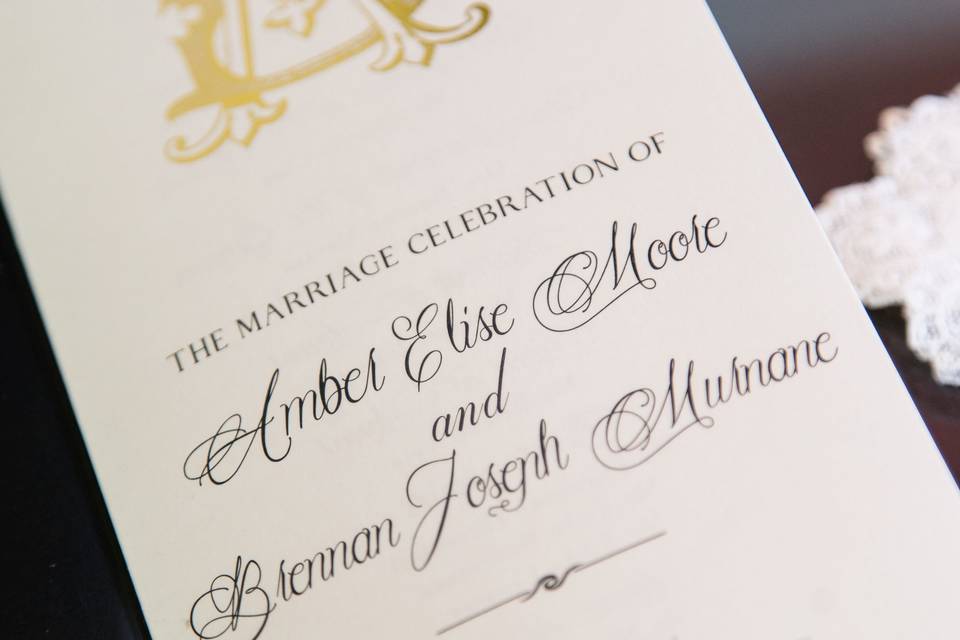 THE MARRIAGE CELEBRATION OF
Amber Elise Moore
and
Brennan Joseph Murnane